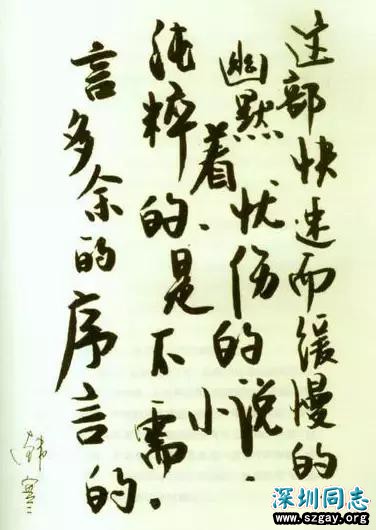 这部快速而缓慢的
幽默着忧伤的小说.
纯粹的、是不需.
言多余的序言的
深圳同志
www.szgay.org